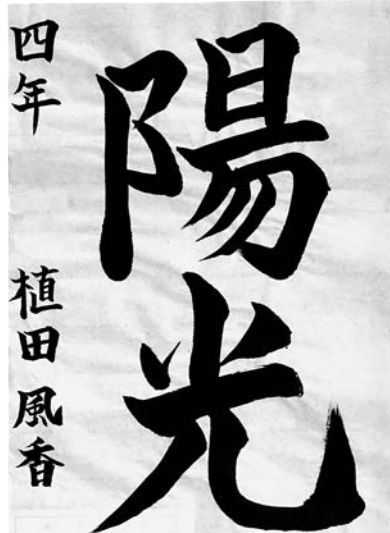 陽光
四年 植田風香